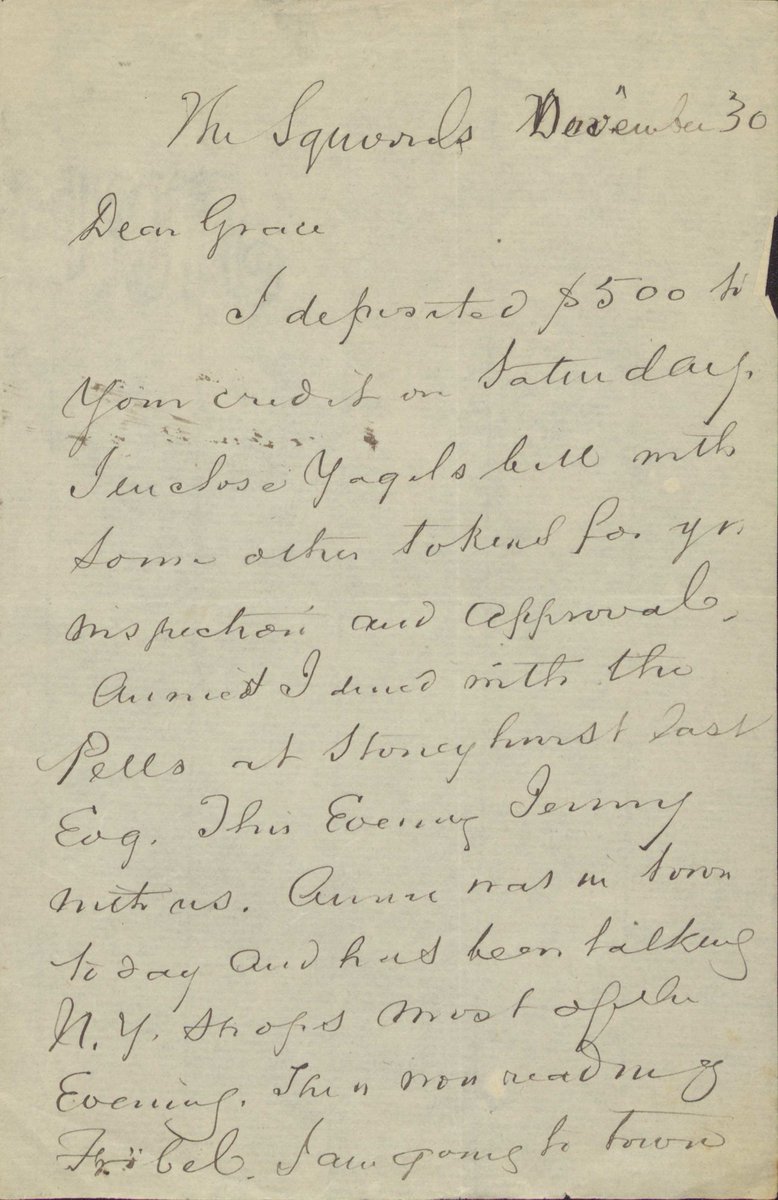 The Squirrels November 30
Dear Grace
I deposited $500 to
your credit on Saturday.
I enclose Yagels bill with
some other tokens for yr
inspection and approval.
Annie & I dined with the
Pells at Stoneyhurst last
Evg. This Evening Jenny
with us. Annie was in town
today and has been talking
N.Y. shops most of the
Evening. She is now reading
Fröbel. I am going to town